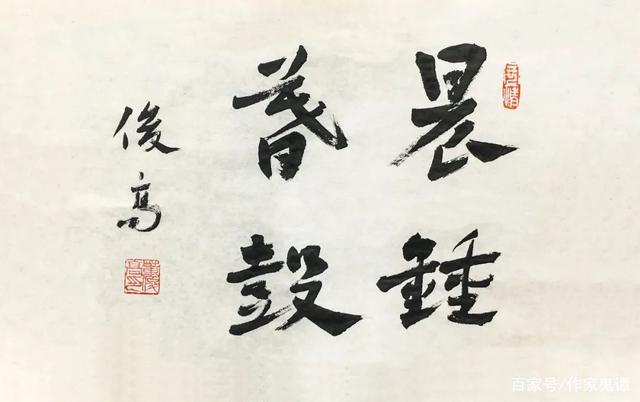 晨鍾
暮鼓
俊高
百家号/作家鬼谭